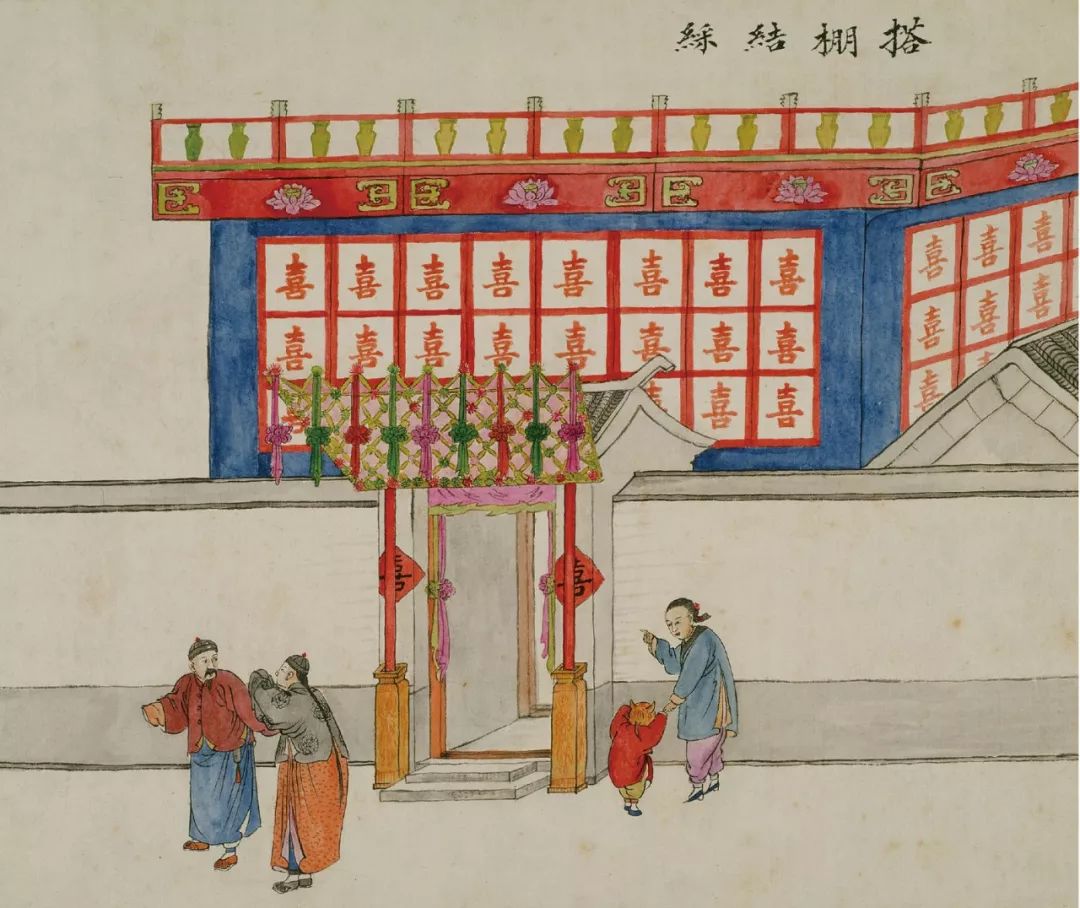 搭棚結綵
喜喜喜喜喜喜喜喜
喜喜喜喜喜喜喜喜
喜喜
喜喜喜
喜喜喜
喜
喜
喜